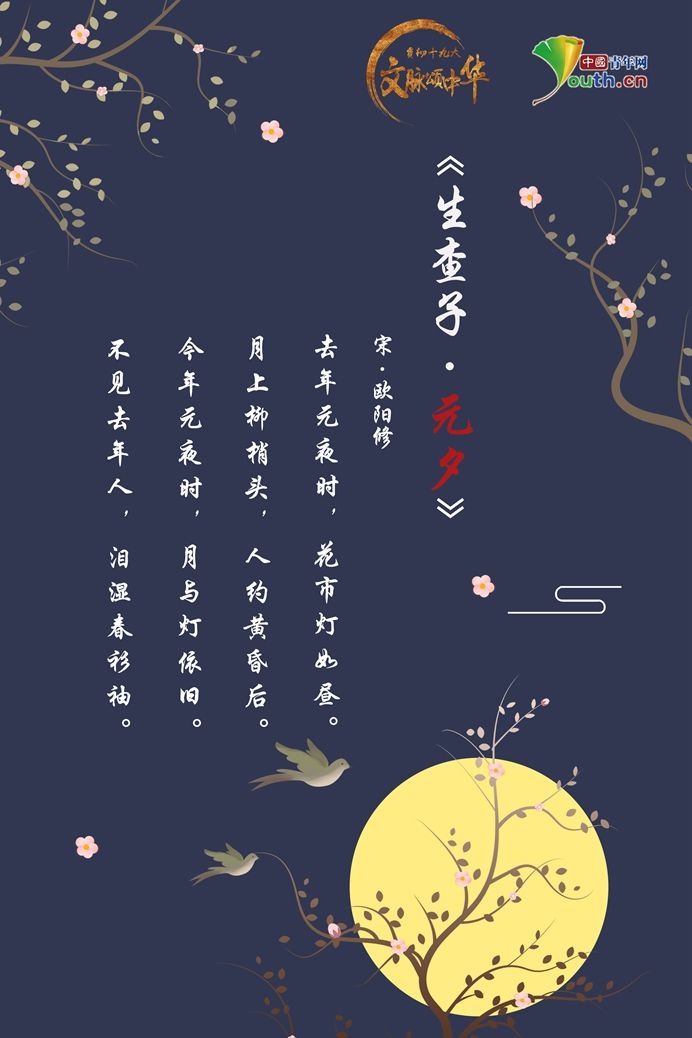 喜迎十九大
文脉颂中华
中國青年网
Youth.cn
《生查子·元夕》
宋·欧阳修
去年元夜时，花市灯如昼。
月上柳梢头，人约黄昏后。
今年元夜时，月与灯依旧。
不见去年人，泪湿春衫袖。